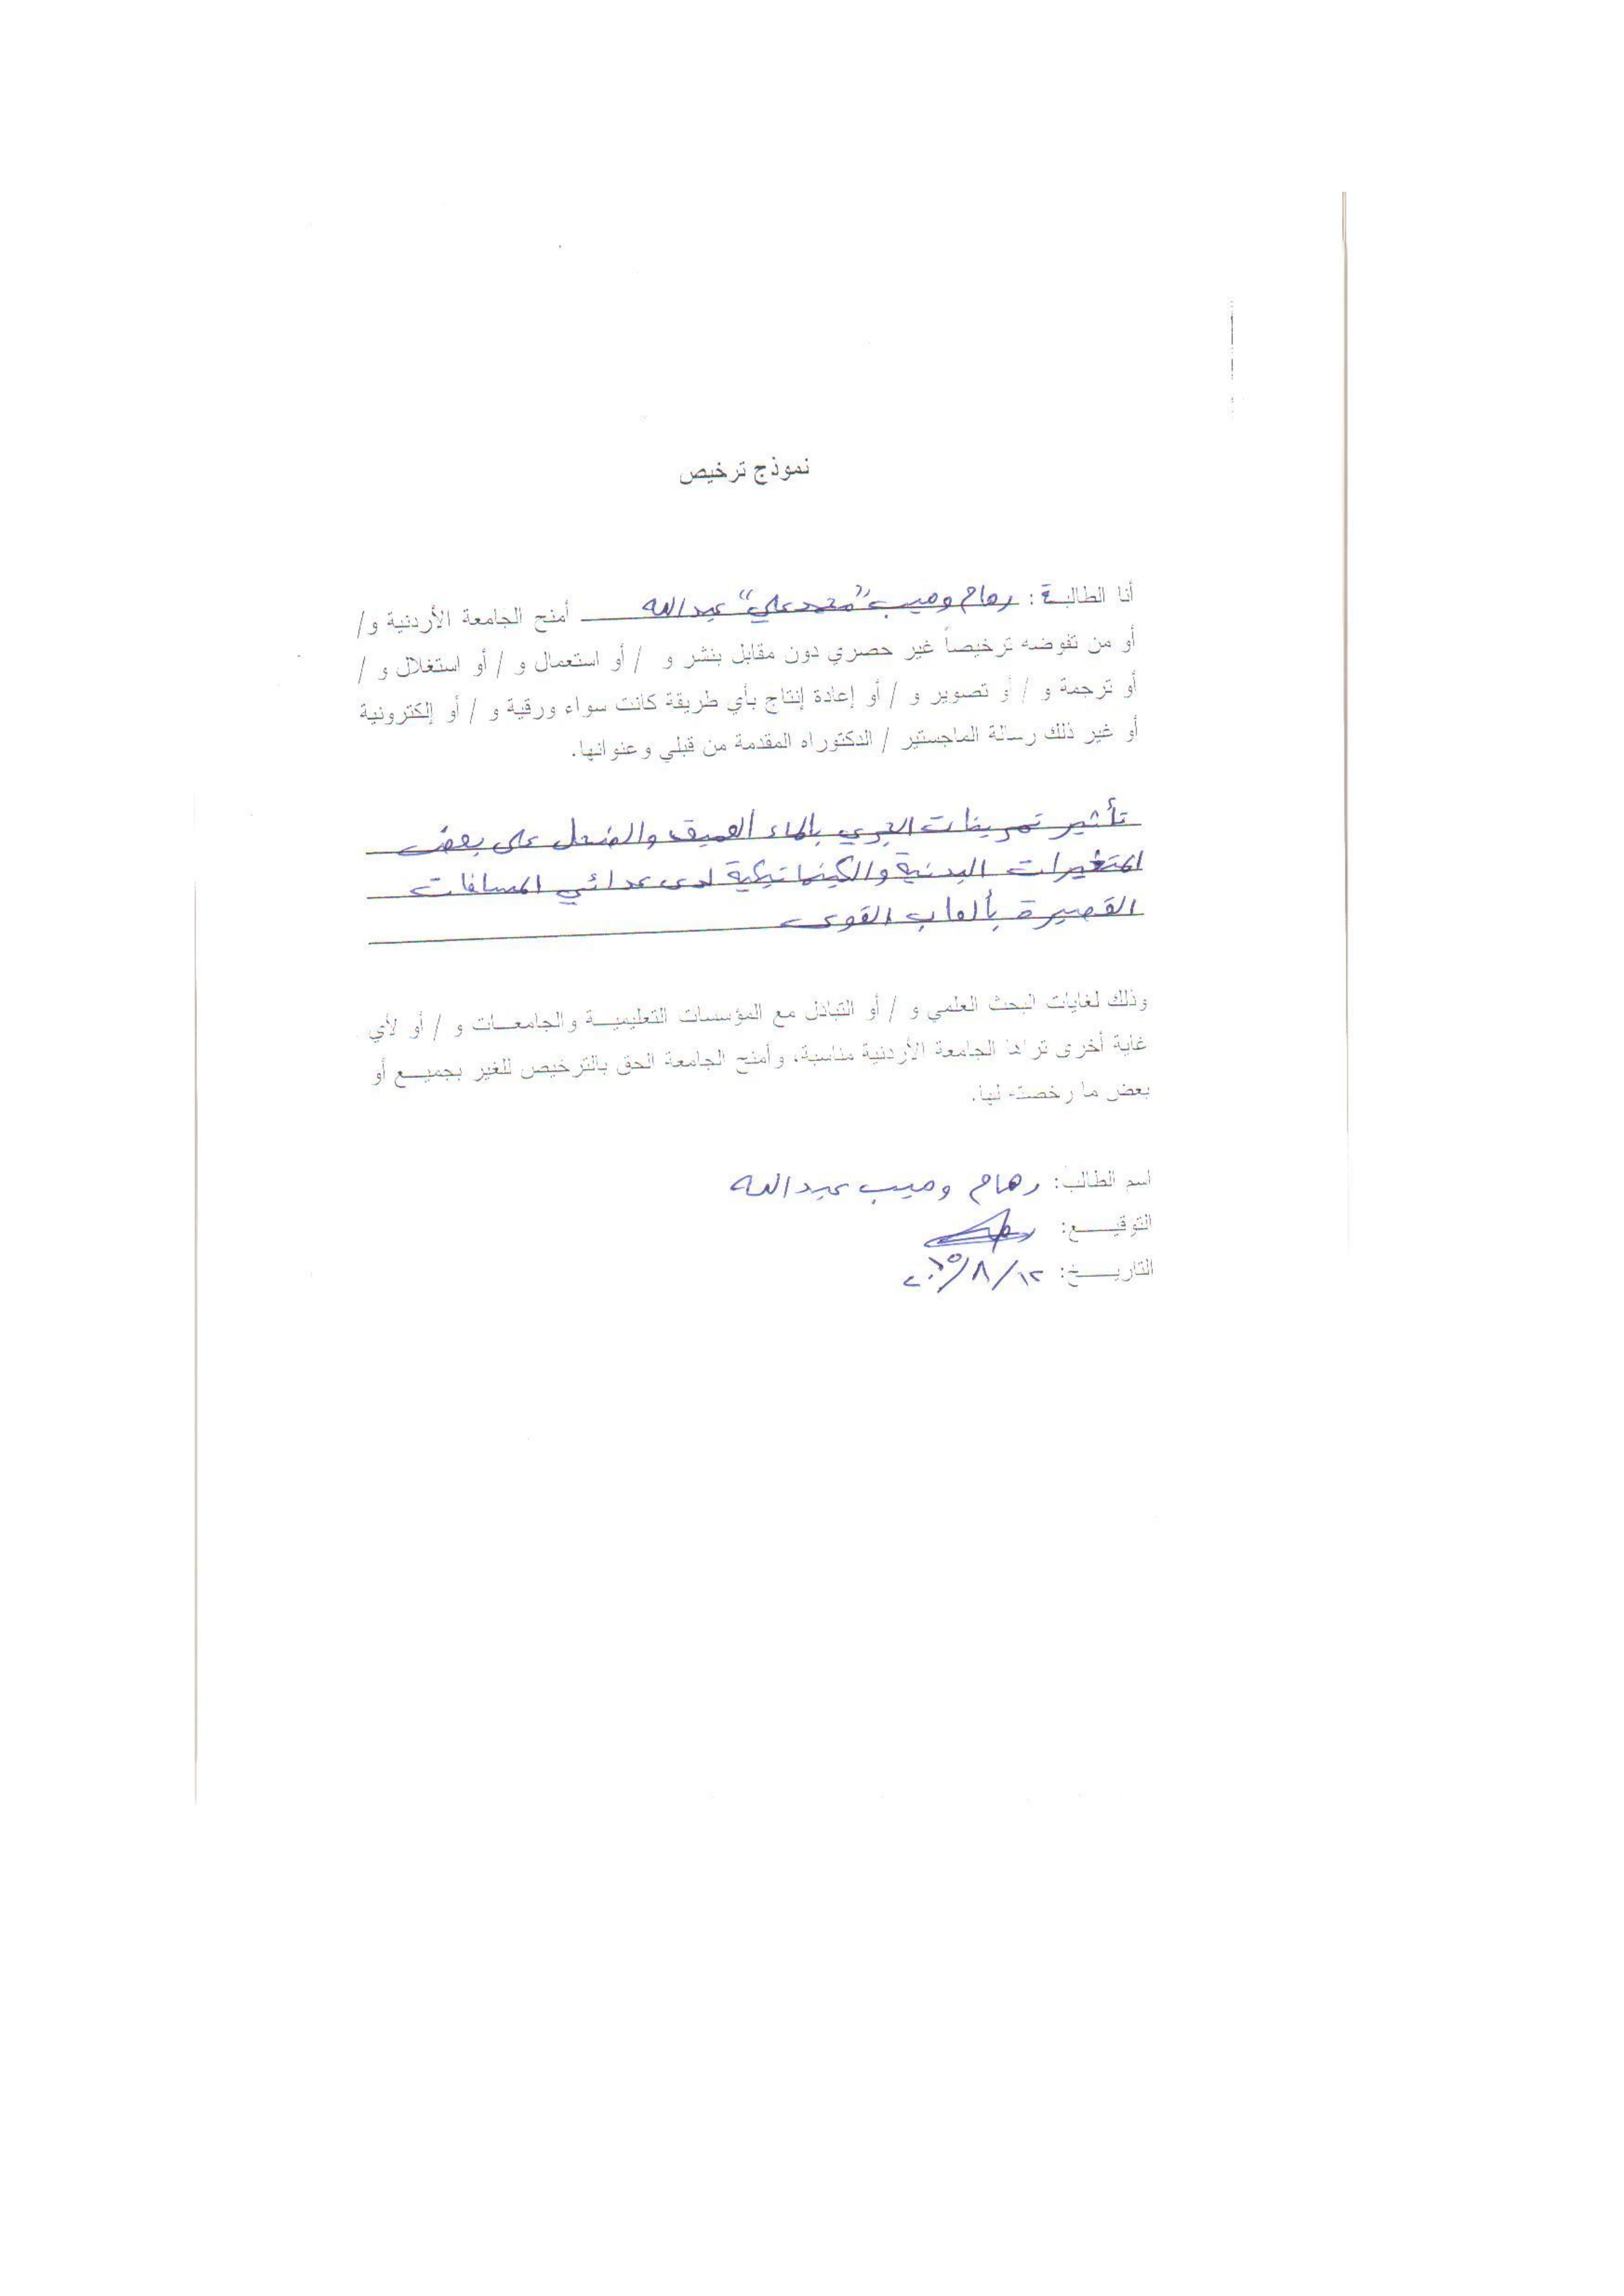 نموذج ترخيص
أنا الطالبة : رهام وهيب "محمد علي" عبدالله أمنح الجامعة الأردنية و/
أو من تفوضه ترخيصاً غير حصري دون مقابل بنشر و / أو استعمال و / أو استغلال و /
أو ترجمة و / أو تصوير و / أو إعادة إنتاج بأي طريقة كانت سواء ورقية و / أو إلكترونية
أو غير ذلك رسالة الماجستير / الدكتوراه المقدمة من قبلي وعنوانها.
تأثير تمرينات الجري بالماء العميق والضحل على بعض
المتغيرات البدنية والكينماتيكية لدى عدائي المسافات
القصيرة بألعاب القوى
وذلك لغايات البحث العلمي و / أو التبادل مع المؤسسات التعليميـــة والجامعـــات و / أو لأي
غاية أخرى تراها الجامعة الأردنية مناسبة، وأمنح الجامعة الحق بالترخيص للغير بجميـــع أو
بعض ما رخصت لها.
اسم الطالب: رهام وهيب عبدالله
التوقيـــــع:
التاريـــــخ: ١٢/٨/٢٠١٥